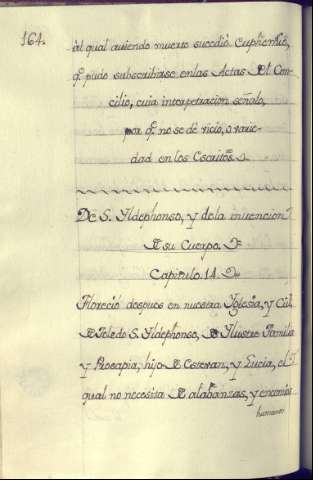 164.
al qual auiendo muerto sucedió Euphemio,
q.e pudo subscribirse en las Actas del Con-
cilio, cuia interpretacion señalo,
por q.e no se dé vicio, o varie-
dad en los Escritos.
De S. Yldephonso, y de la invencion
de su Cuerpo.
Capitulo. 14.
Floreció despues en nuestra Yglesia, y Ciu.d
de Toledo S. Yldephonso, de Ylustre Familia
y Prosapia; hijo de Estevan, y Lucia, el
qual no necesita de alabanzas, y encomios
humanos